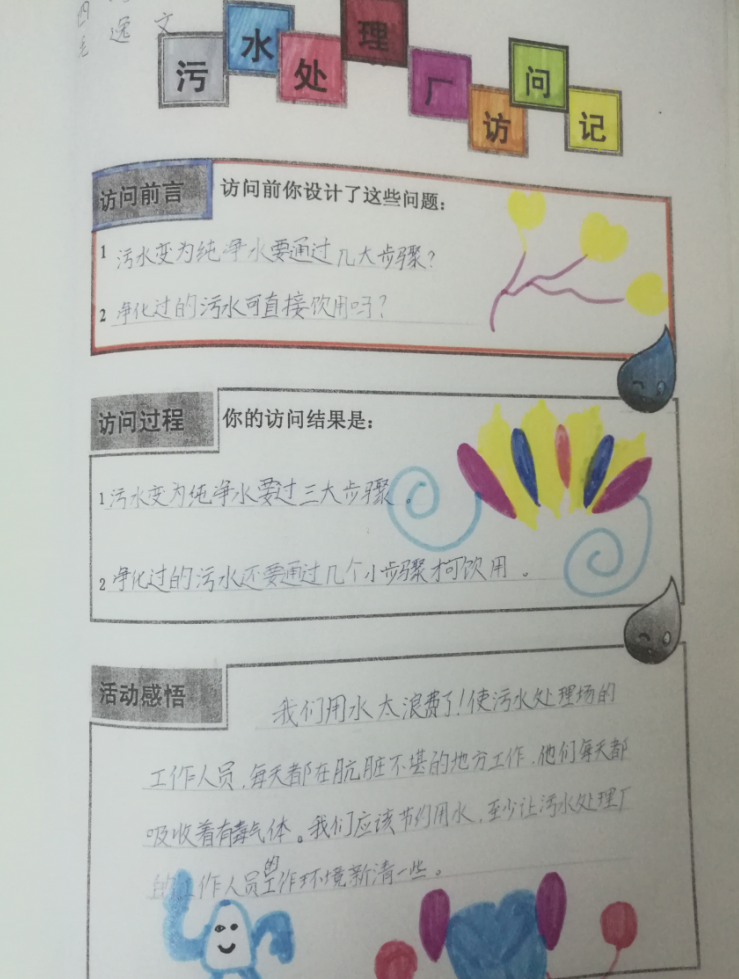 逸文
污水处理厂访问记
访问前言
访问前你设计了这些问题：
1 污水变为纯净水要通过几大步骤？
2 净化过的污水可直接饮用吗？
访问过程
你的访问结果是：
1 污水变为纯净水要过三大步骤。
2 净化过的污水还要通过几个小步骤才可饮用。
活动感悟
我们用水太浪费了！使污水处理场的
工作人员，每天都在肮脏不堪的地方工作，他们每天都
吸收着有毒气体。我们应该节约用水，至少让污水处理厂
的工作人员的工作环境新清一些。